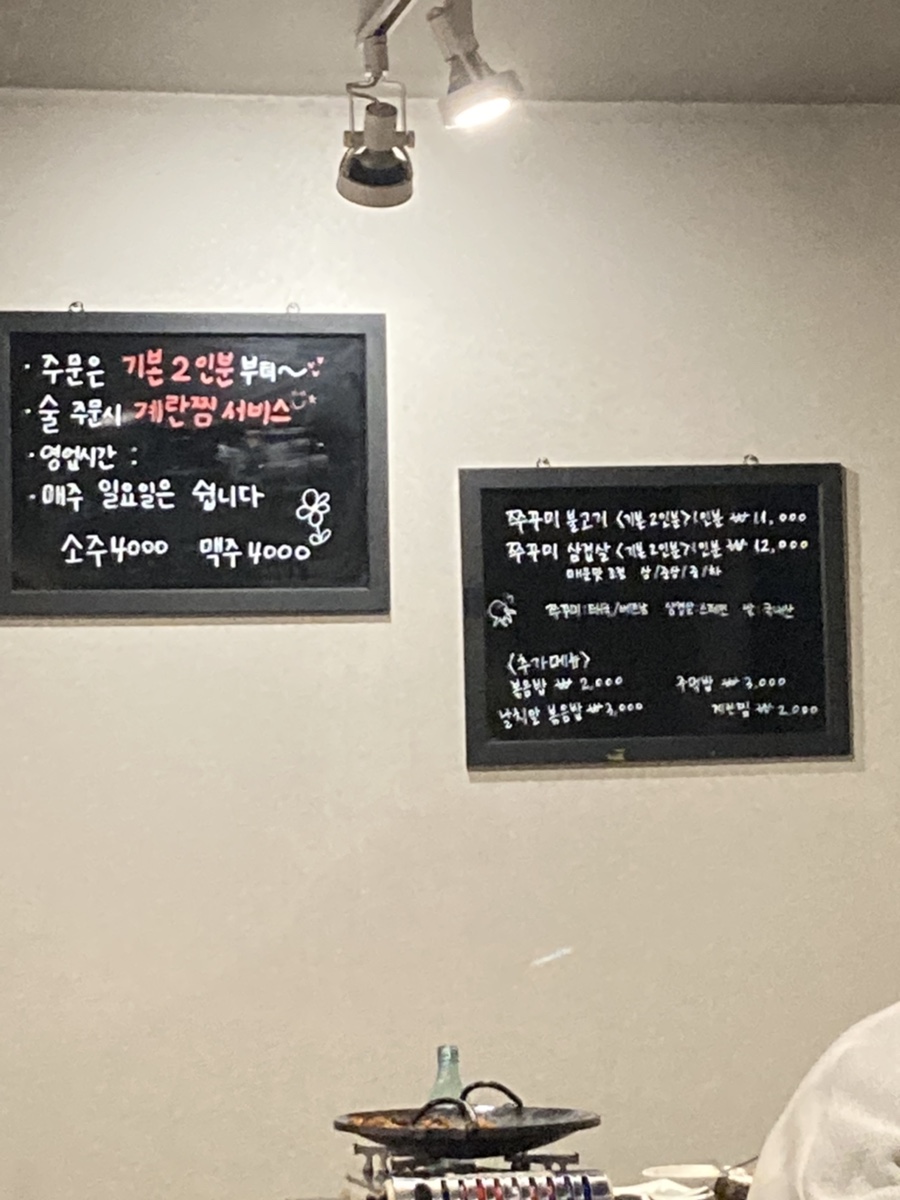 · 주문은 기본 2인분 부터~
· 술 주문시 계란찜 서비스
· 영업시간 :
· 매주 일요일은 쉽니다
소주 4000 맥주 4000
쭈꾸미 불고기 <기본 2인분> 1인분 ₩ 11,000
쭈꾸미 삼겹살 <기본 2인분> 1인분 ₩ 12,000
매운맛 조절 상/중상/중/하
쭈꾸미:태국/베트남 삼겹살:스페인 쌀:국내산
<추가메뉴>
볶음밥 ₩ 2,000 주먹밥 ₩ 3,000
날치알 볶음밥 ₩ 3,000 계란찜 ₩ 2,000